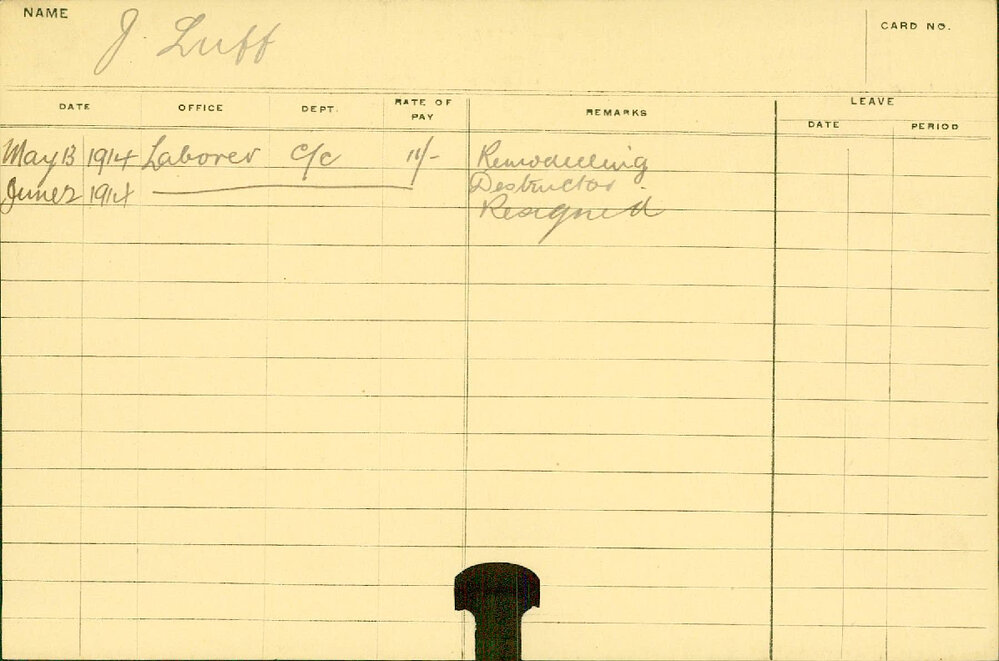 NAME J. Luff CARD NO.
DATE OFFICE DEPT. RATE OF PAY REMARKS LEAVE
DATE PERIOD
May 13 1914 Laborer C/c 11/- Remodelling
Destructor
June 2 1914 Resigned